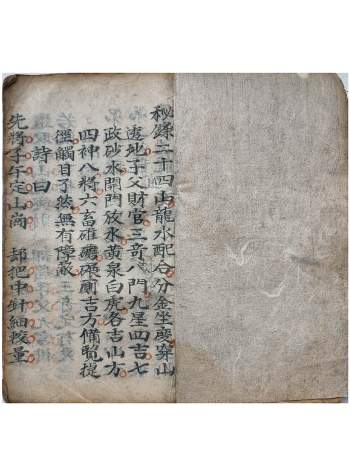 秘錄二十四山龍水配合分金坐度穿山
透地子父財官三奇八門九星四吉七
政砂水開門放水黃泉白虎各吉山方
四神八將六畜碓磨碾廁吉方備覽提
徑觸目了然無有
詩曰
先將子午定山崗 却把中針細較量